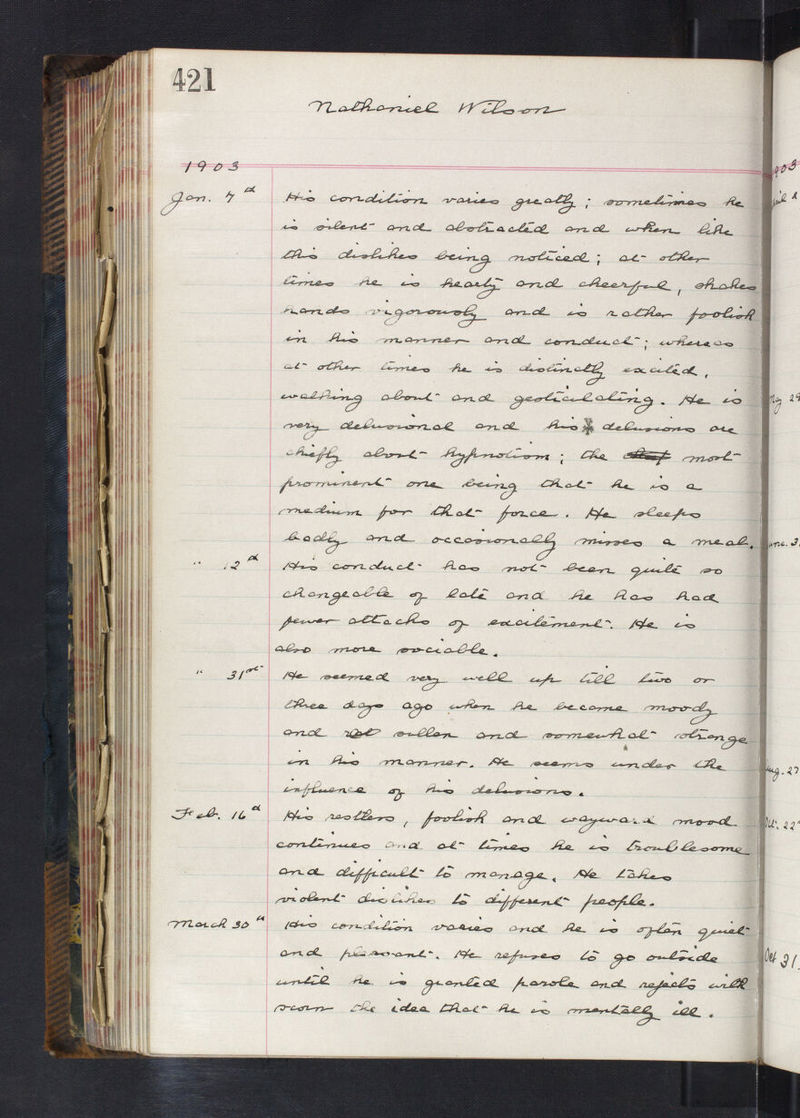 421
Nathaniel Wilson
1903
Jan. 7th His condition varies greatly; sometimes he
is silent and abstracted and when like
this dislikes being noticed; at other
times he is hearty and cheerful, shakes
hands vigorously and is rather foolish
in his manner and conduct; whereas
at other times he is distinctly excited,
walking about and gesticulating. He is
very delusional and his delusions are
chiefly about hypnotism; the chief most
prominent one being that he is a
medium for that force. He sleeps
badly and occasionally misses a meal.
" 12th His conduct has not been quite so
changeable of late and he has had
fewer attacks of excitement. He is
also more sociable.
" 31st He seemed very well up till two or
three days ago when he became moody
and sullen and somewhat strange
in his manner. He seems under the
influence of his delusions.
Feb. 16th His restless, foolish and wayward mood
continues and at times he is troublesome
and difficult to manage. He takes
violent dislikes to different people.
March 30th His condition varies and he is often quiet
and pleasant. He refuses to go outside
until he is granted parole and rejects with
scorn the idea that he is mentally ill.
903
29
Aug. 27
Oct. 22
Oct 31.